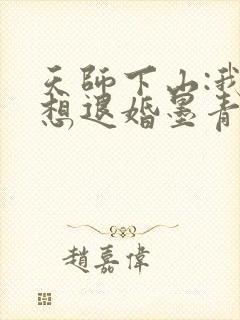 天師下山:我
想退婚墨青
趙嘉偉